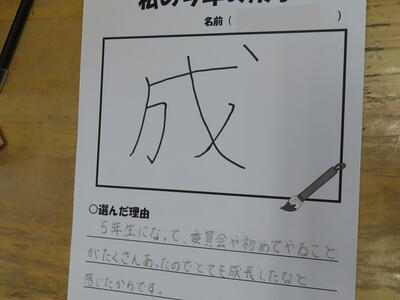 名前（　　　　　）
成
○選んだ理由
5年生になって、委員会や初めてやること
がたくさんあったのでとても成長したなと
感じたからです。